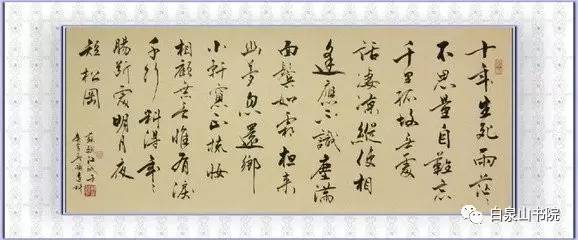 十年生死兩茫々
不思量自難忘
千里孤坟無處
話淒涼縱使相
逢應不識塵滿
面鬢如霜夜来
幽夢忽還鄉
小軒窗正梳妝
相顧無言惟有淚
千行料得年々
腸斷處明月夜
短松岡
蘇軾江城子
白泉山书院